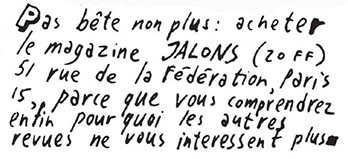 Pas bête non plus: acheter
le magazine JALONS (20 FF)
51 rue de la Fédération, Paris
15, parce que vous comprendrez
enfin pourquoi les autres
revues ne vous interessent plus.